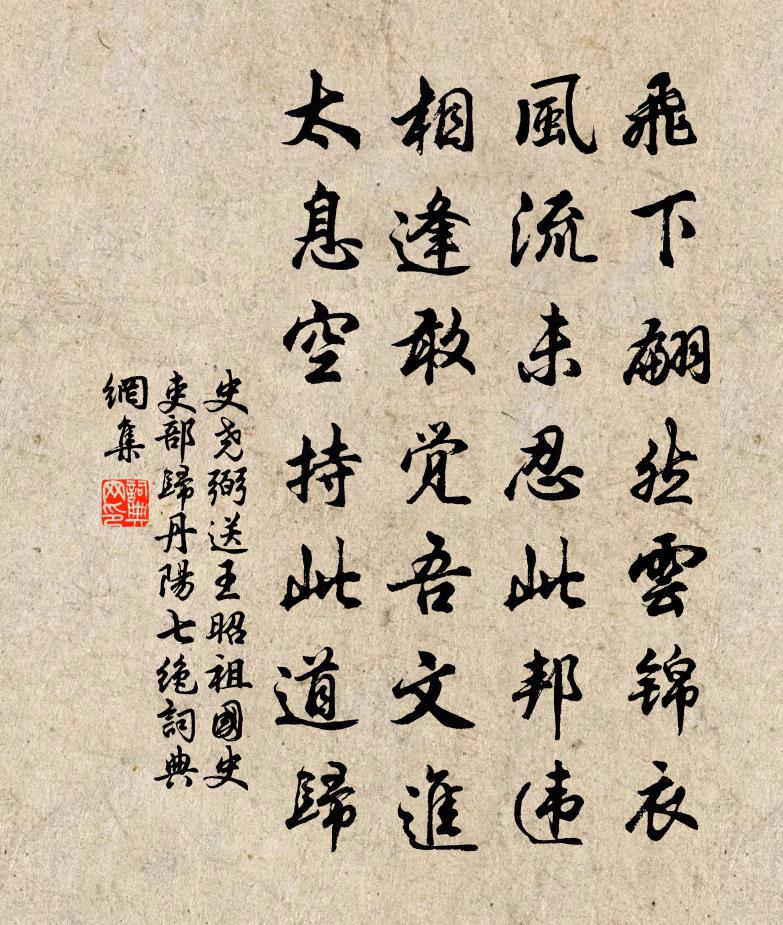 飛下翩然雲錦衣
風流未忍此邦违
相逢敢觉吾文進
太息空持此道歸
史尧弼送王昭祖國史
吏部歸丹陽七绝詞典
網集
詞典网印